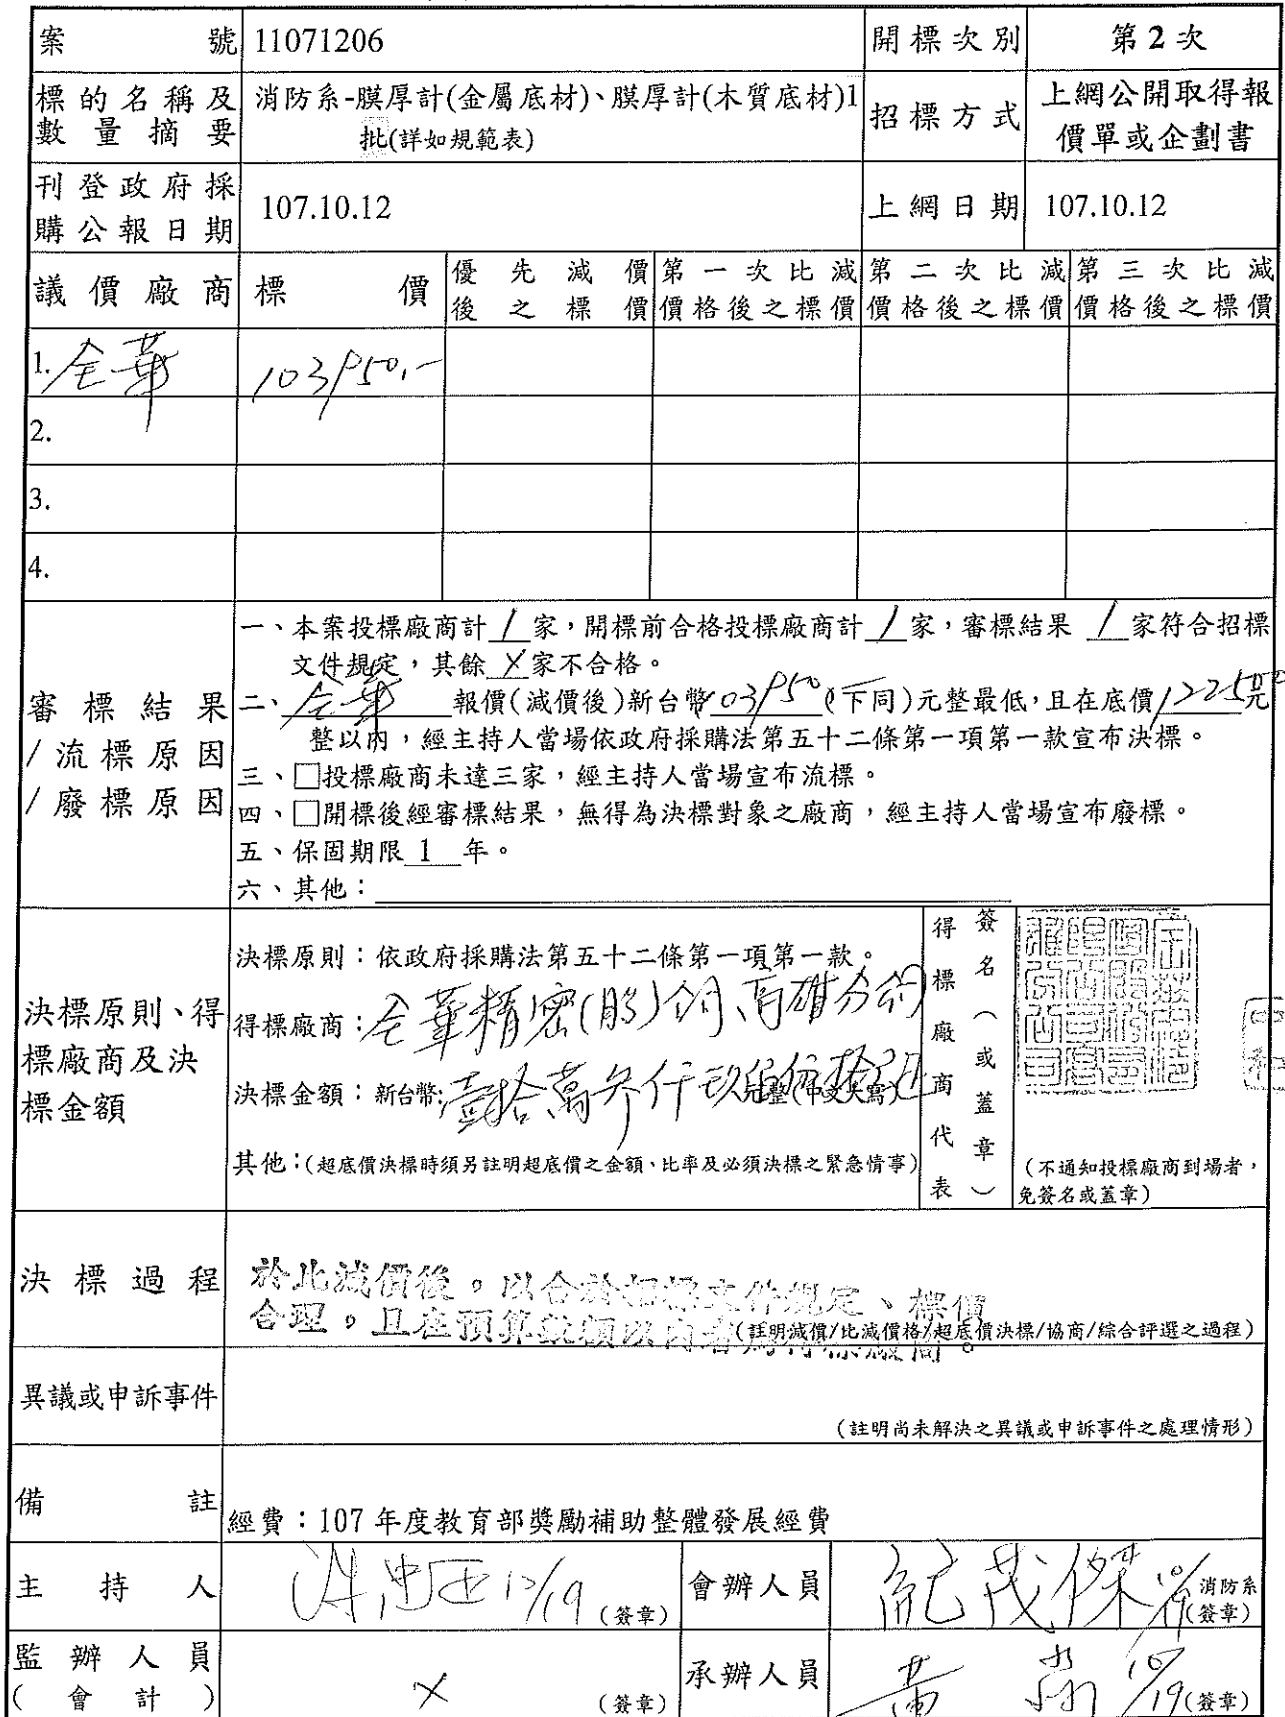 案號 11071206 開標次別 第2次
標的名稱及數量摘要 消防系-膜厚計(金屬底材)、膜厚計(木質底材)1批(詳如規範表) 招標方式 上網公開取得報價單或企劃書
刊登政府採購公報日期 107.10.12 上網日期 107.10.12
議價廠商 標價 優先減價後之標價 第一次比減價格後之標價 第二次比減價格後之標價 第三次比減價格後之標價
1. 全華 103950.-
2.
3.
4.
審標結果/流標原因/廢標原因
一、本案投標廠商計 1 家，開標前合格投標廠商計 1 家，審標結果 1 家符合招標
文件規定，其餘 X 家不合格。
二、全華 報價(減價後)新台幣103950(下同)元整最低，且在底價122500元
整以內，經主持人當場依政府採購法第五十二條第一項第一款宣布決標。
三、□投標廠商未達三家，經主持人當場宣布流標。
四、□開標後經審標結果，無得為決標對象之廠商，經主持人當場宣布廢標。
五、保固期限 1 年。
六、其他：
決標原則、得標廠商及決標金額
決標原則：依政府採購法第五十二條第一項第一款。
得標廠商：全華精密(股)公司高雄分公司
決標金額：新台幣:壹拾萬參仟玖佰伍拾元整(中文大寫)
其他：(超底價決標時須另註明超底價之金額、比率及必須決標之緊急情事)
得標廠商代表簽名（或蓋章）
(不通知投標廠商到場者，
免簽名或蓋章)
決標過程
於比減價後。以合於招標文件規定、標價
合理。且在預算數額以內者為得標廠商。
(註明減價/比減價格/超底價決標/協商/綜合評選之過程)
異議或申訴事件
(註明尚未解決之異議或申訴事件之處理情形)
備註 經費：107 年度教育部獎勵補助整體發展經費
主持人 12/19 (簽章) 會辦人員 紀茂傑 消防系 (簽章)
監辦人員(會計) X (簽章) 承辦人員 黃 10/19 (簽章)